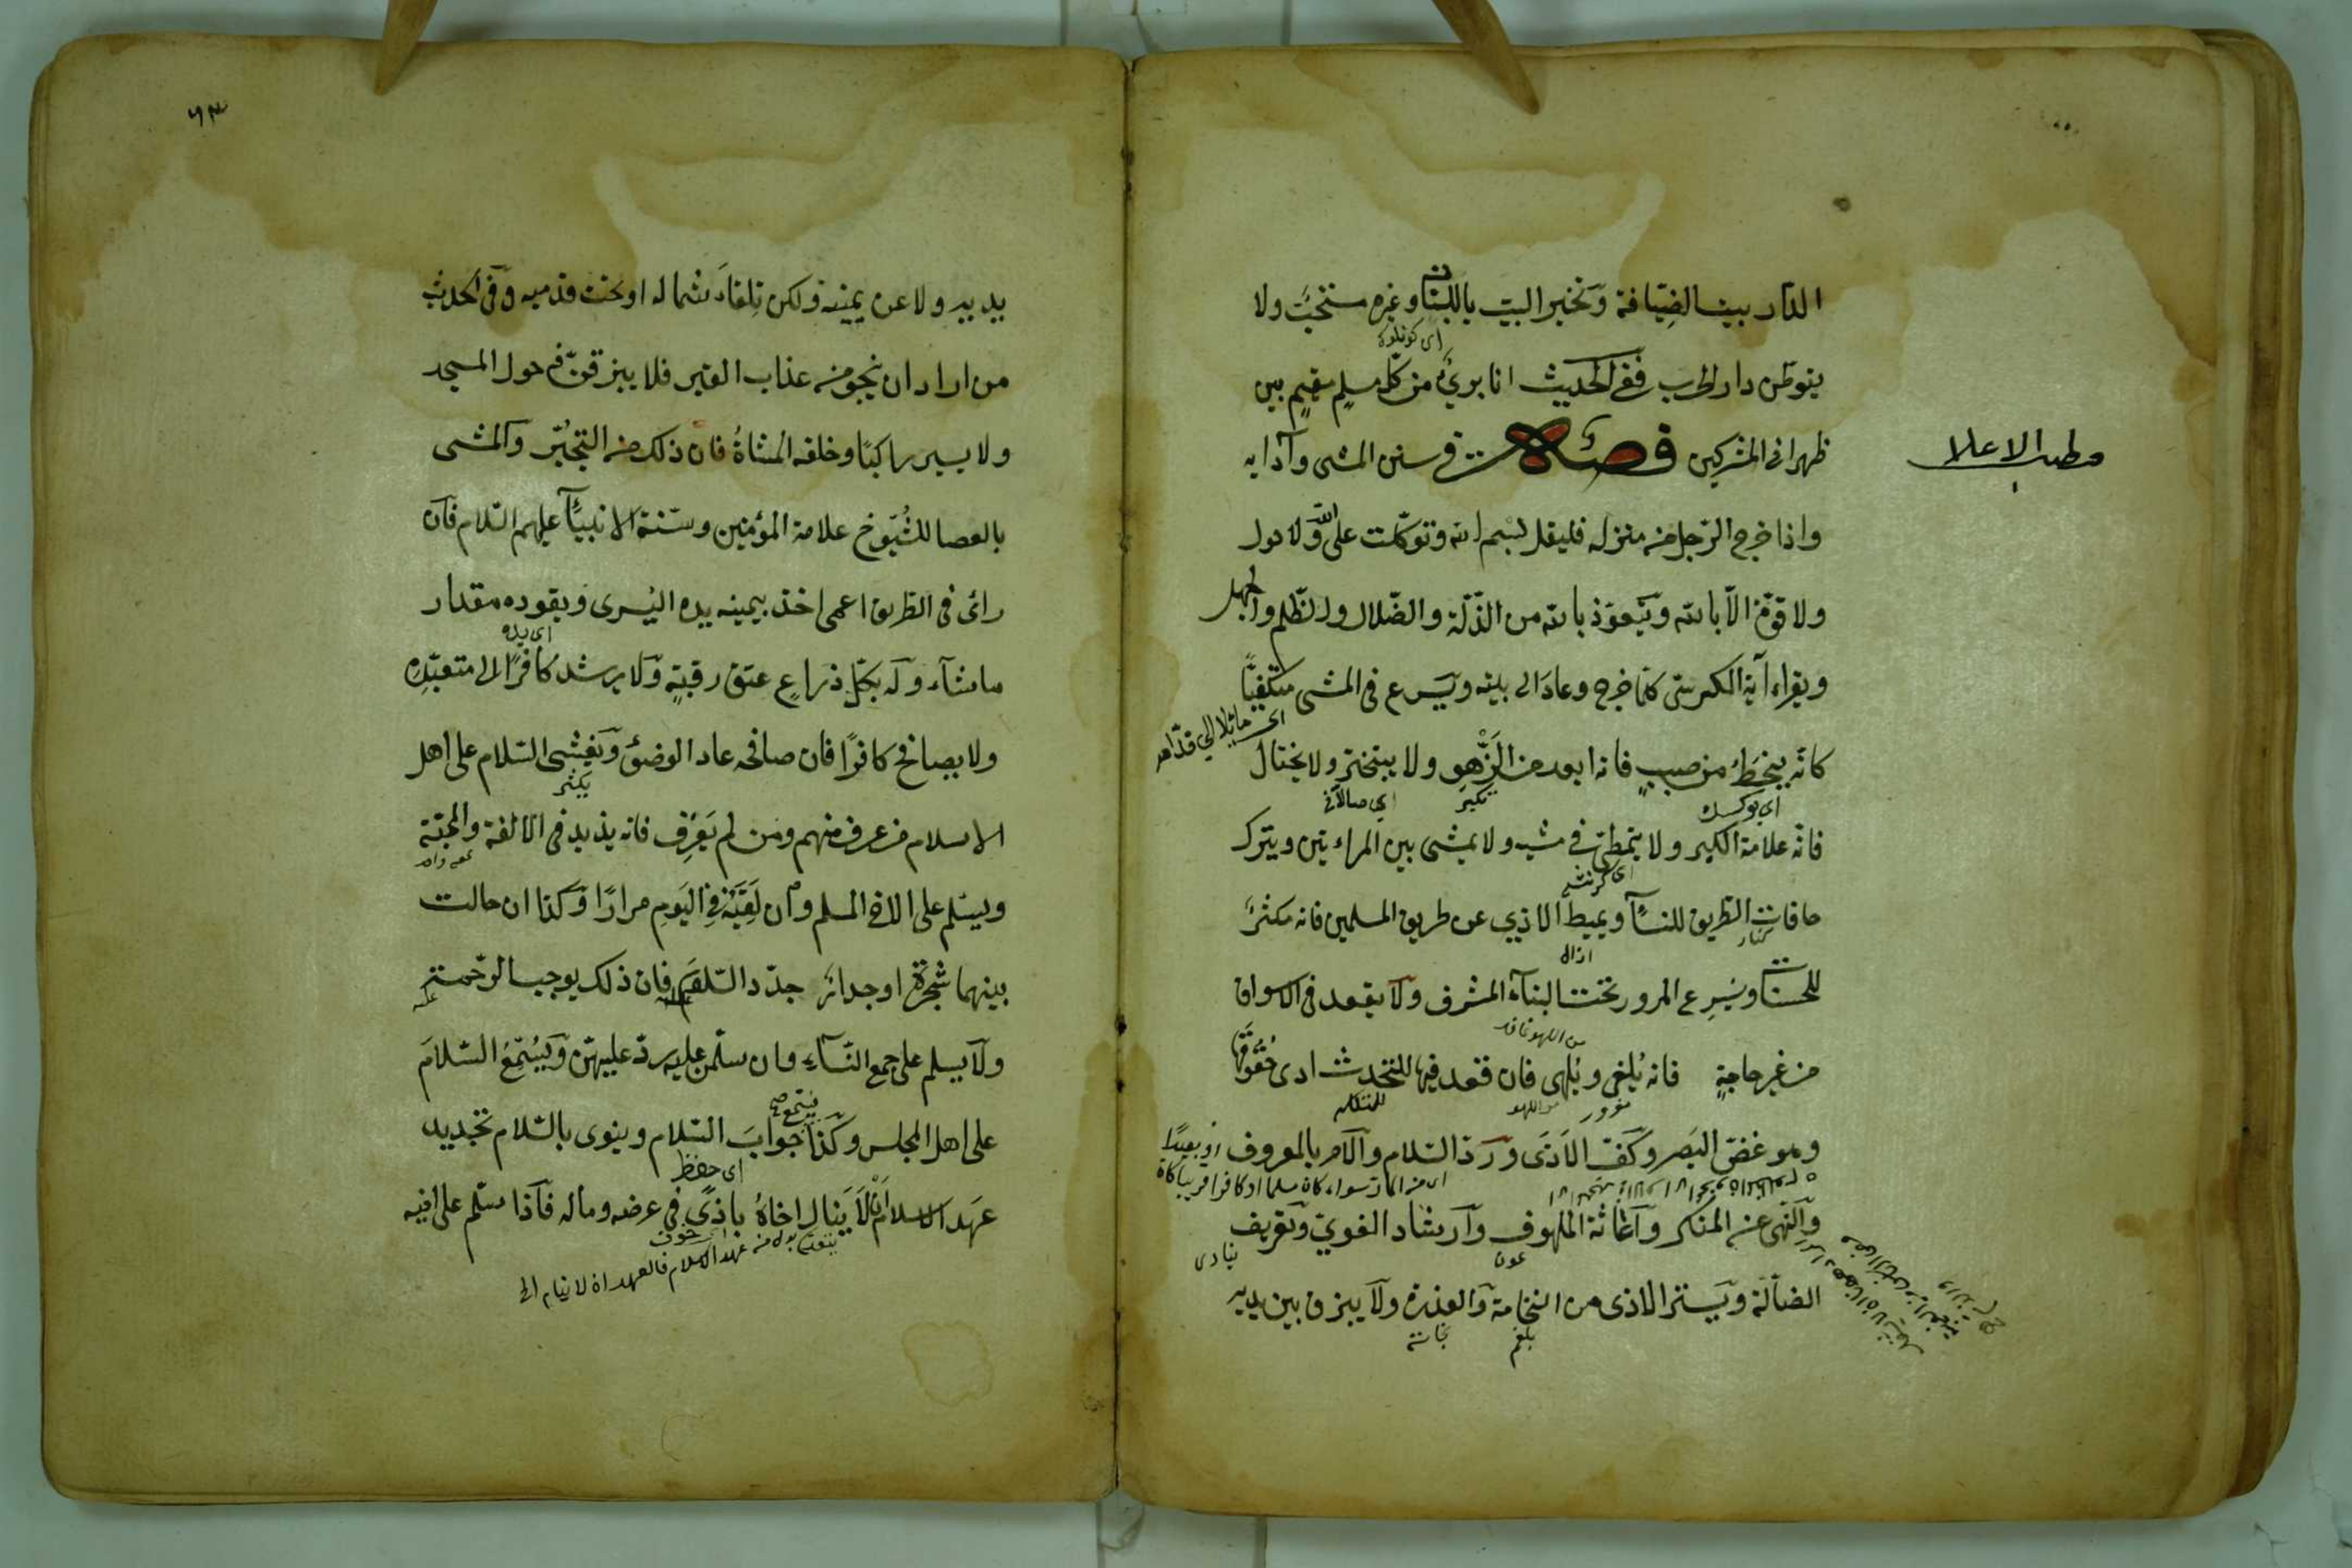 الدار بيت الضيافة وتخير البيت باللبنات وغيره مستحب ولا
يتوطن دار الحرب ففى الحديث انا برئ من كل مسلم مقيم بين
ظهرانى المشركين فصل فى سنن المشى وآدابه
واذا خرج الرجل من منزله فليقل بسم الله وتوكلت على الله ولا حول
ولا قوة الا بالله ويتعوذ بالله من الذلة والضلال والظلم والجهل
ويقراء آية الكرسى كلما خرج وعاد الى بيته ويسرع فى المشى متكفيًا
اى مائلا الى قدامه
كانه ينحط من صبب فانه ابعد من الزهو ولا يتبختر ولا يختال
تكبر
فانه علامة الكبر ولا يتمطى فى مشيه ولا يمشى بين المراءتين ويترك
حافات الطريق للنساء ويميط الاذي عن طريق المسلمين فانه مكثر
كنار
ازاله
للحسنات ويسرع المرور تحت البناء المشرف ولا يقعد فى الاسواق
من غير حاجة فانه يلغى ويلهى فان قعد فيها للتحدث ادى حقوقها
للتكلم
وهو غض البصر وكف الاذى ورد السلام والامر بالمعروف
والنهى عن المنكر واغاثة الملهوف وارشاد الغوي وتعريف
عون
ينادى
الضالة ويستر الاذى من النخامة والعذرة ولا يبزق بين يديه
بلغم
نجاسة
٦٣
يديه ولا عن يمينه ولكن تلقاء شماله او تحت قدميه وفى الحديث
من اراد ان ينجو من عذاب القبر فلا يبزقن فى حول المسجد
ولا يسير راكبًا وخلفه المشاة فان ذلك من التجبر والمشى
بالعصا للشيوخ علامة المؤمنين وسنة الانبياء عليهم السلام فان
رأى فى الطريق اعمى اخذ بيمينه يده اليسرى ويقوده مقدار
اى يده
ما شاء وله بكل ذراع عتق رقبة ولا يرشد كافرًا الى متعبده
ولا يصافح كافرًا فان صافحه عاد الوضوء ويفشى السلام على اهل
يكثر
الاسلام من عرف منهم ومن لم يعرف فانه يزيد فى الالفة والمحبة
ويسلم على الاخ المسلم وان لقيه فى اليوم مرارًا وكذا ان حالت
بينهما شجرة او جدار جدد السلام فان ذلك يوجب الرحمة
ولا يسلم على جمع النساء وان سلمن عليه يرد عليهن ويسمع السلام
على اهل المجلس وكذا جواب السلام وينوى بالسلام تجديد
اى حفظ
عهد الاسلام ان لا ينال اخاه باذى فى عرضه وماله فاذا سلم على اخيه